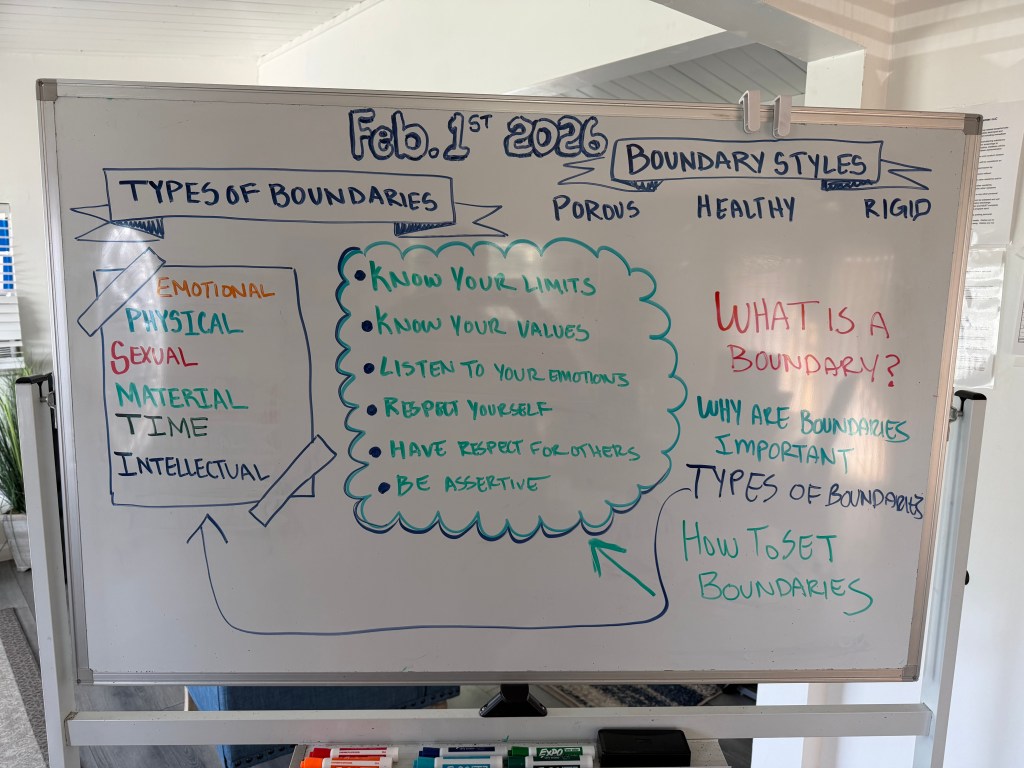 Feb. 1ST 2026
TYPES OF BOUNDARIES
BOUNDARY STYLES
POROUS HEALTHY RIGID
EMOTIONAL
PHYSICAL
SEXUAL
MATERIAL
TIME
INTELLECTUAL
• KNOW YOUR LIMITS
• KNOW YOUR VALUES
• LISTEN TO YOUR EMOTIONS
• RESPECT YOURSELF
• HAVE RESPECT FOR OTHERS
• BE ASSERTIVE
WHAT IS A
BOUNDARY?
WHY ARE BOUNDARIES
IMPORTANT
TYPES OF BOUNDARIES
HOW TO SET
BOUNDARIES
EXPO